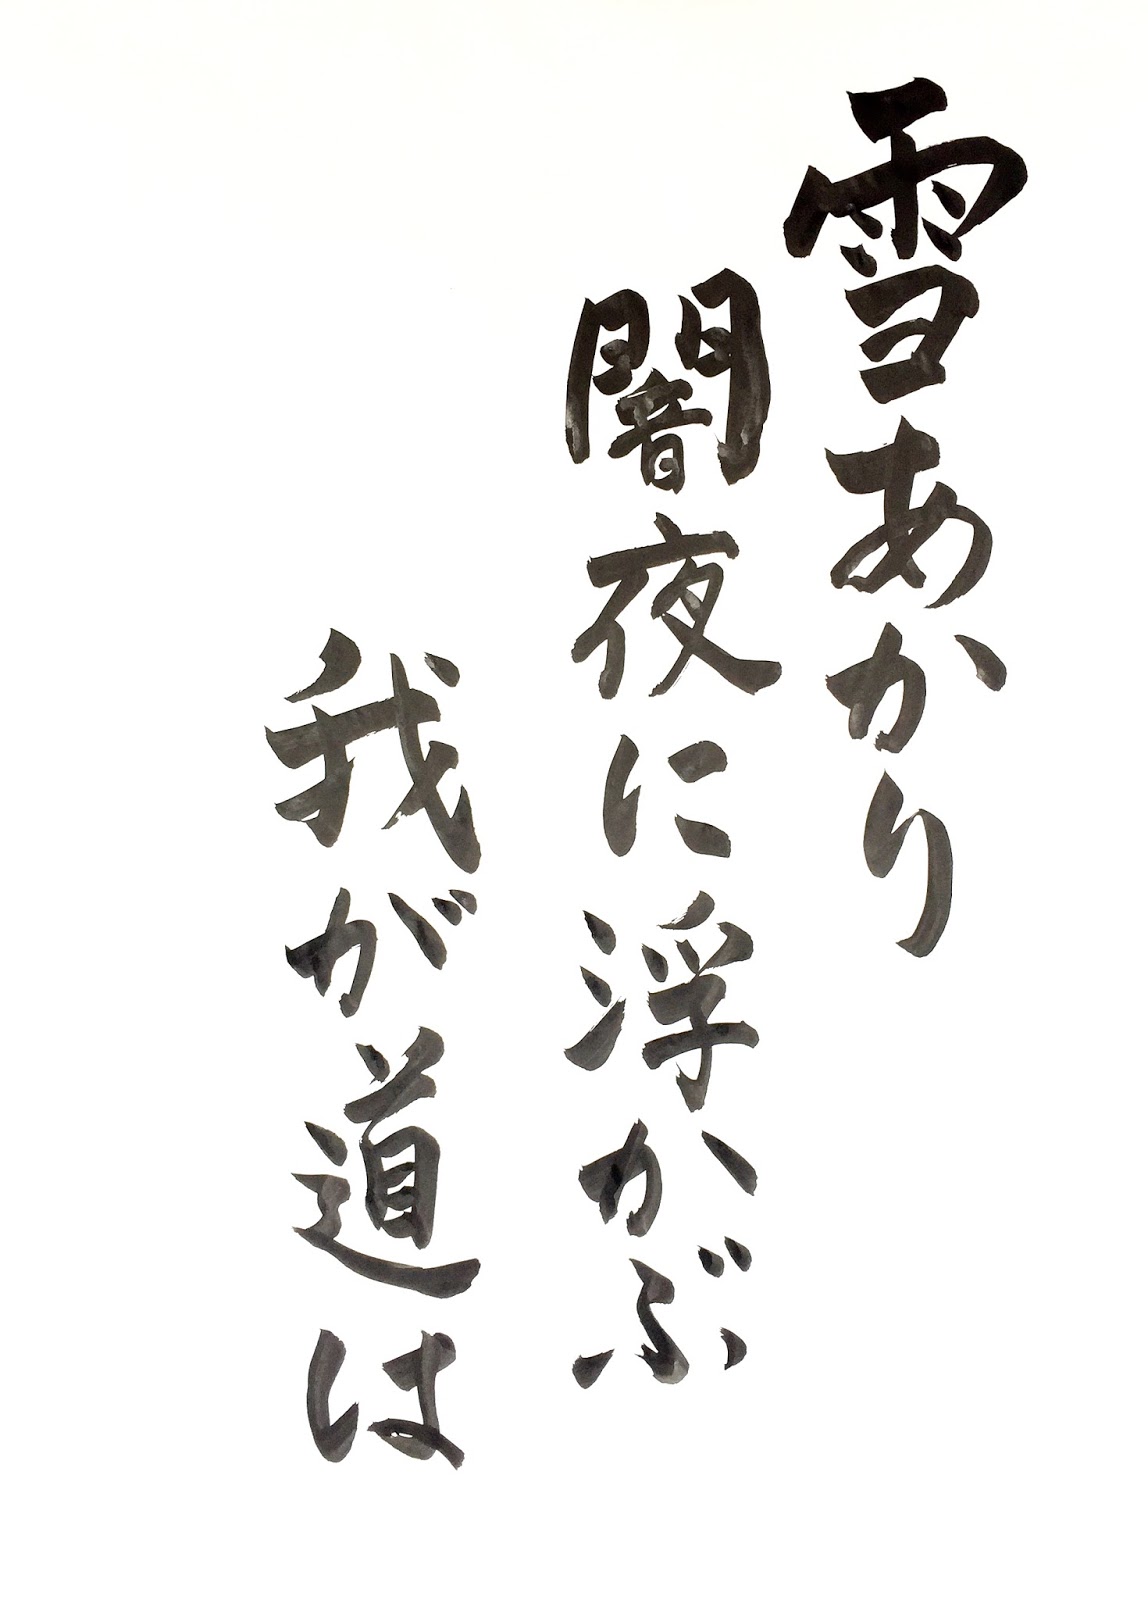 雪あかり
闇夜に浮かぶ
我が道は